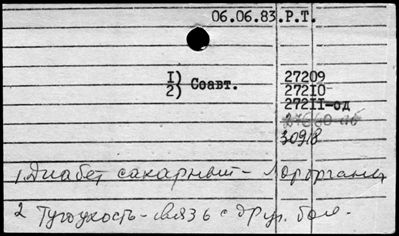 06.06.83.Р.Т.
1) 2) Соавт.
27209
27210
27211-од
30918
1. Диабет сахарный - Лорорганы
2 Тугоухость - связь с друг. бол.